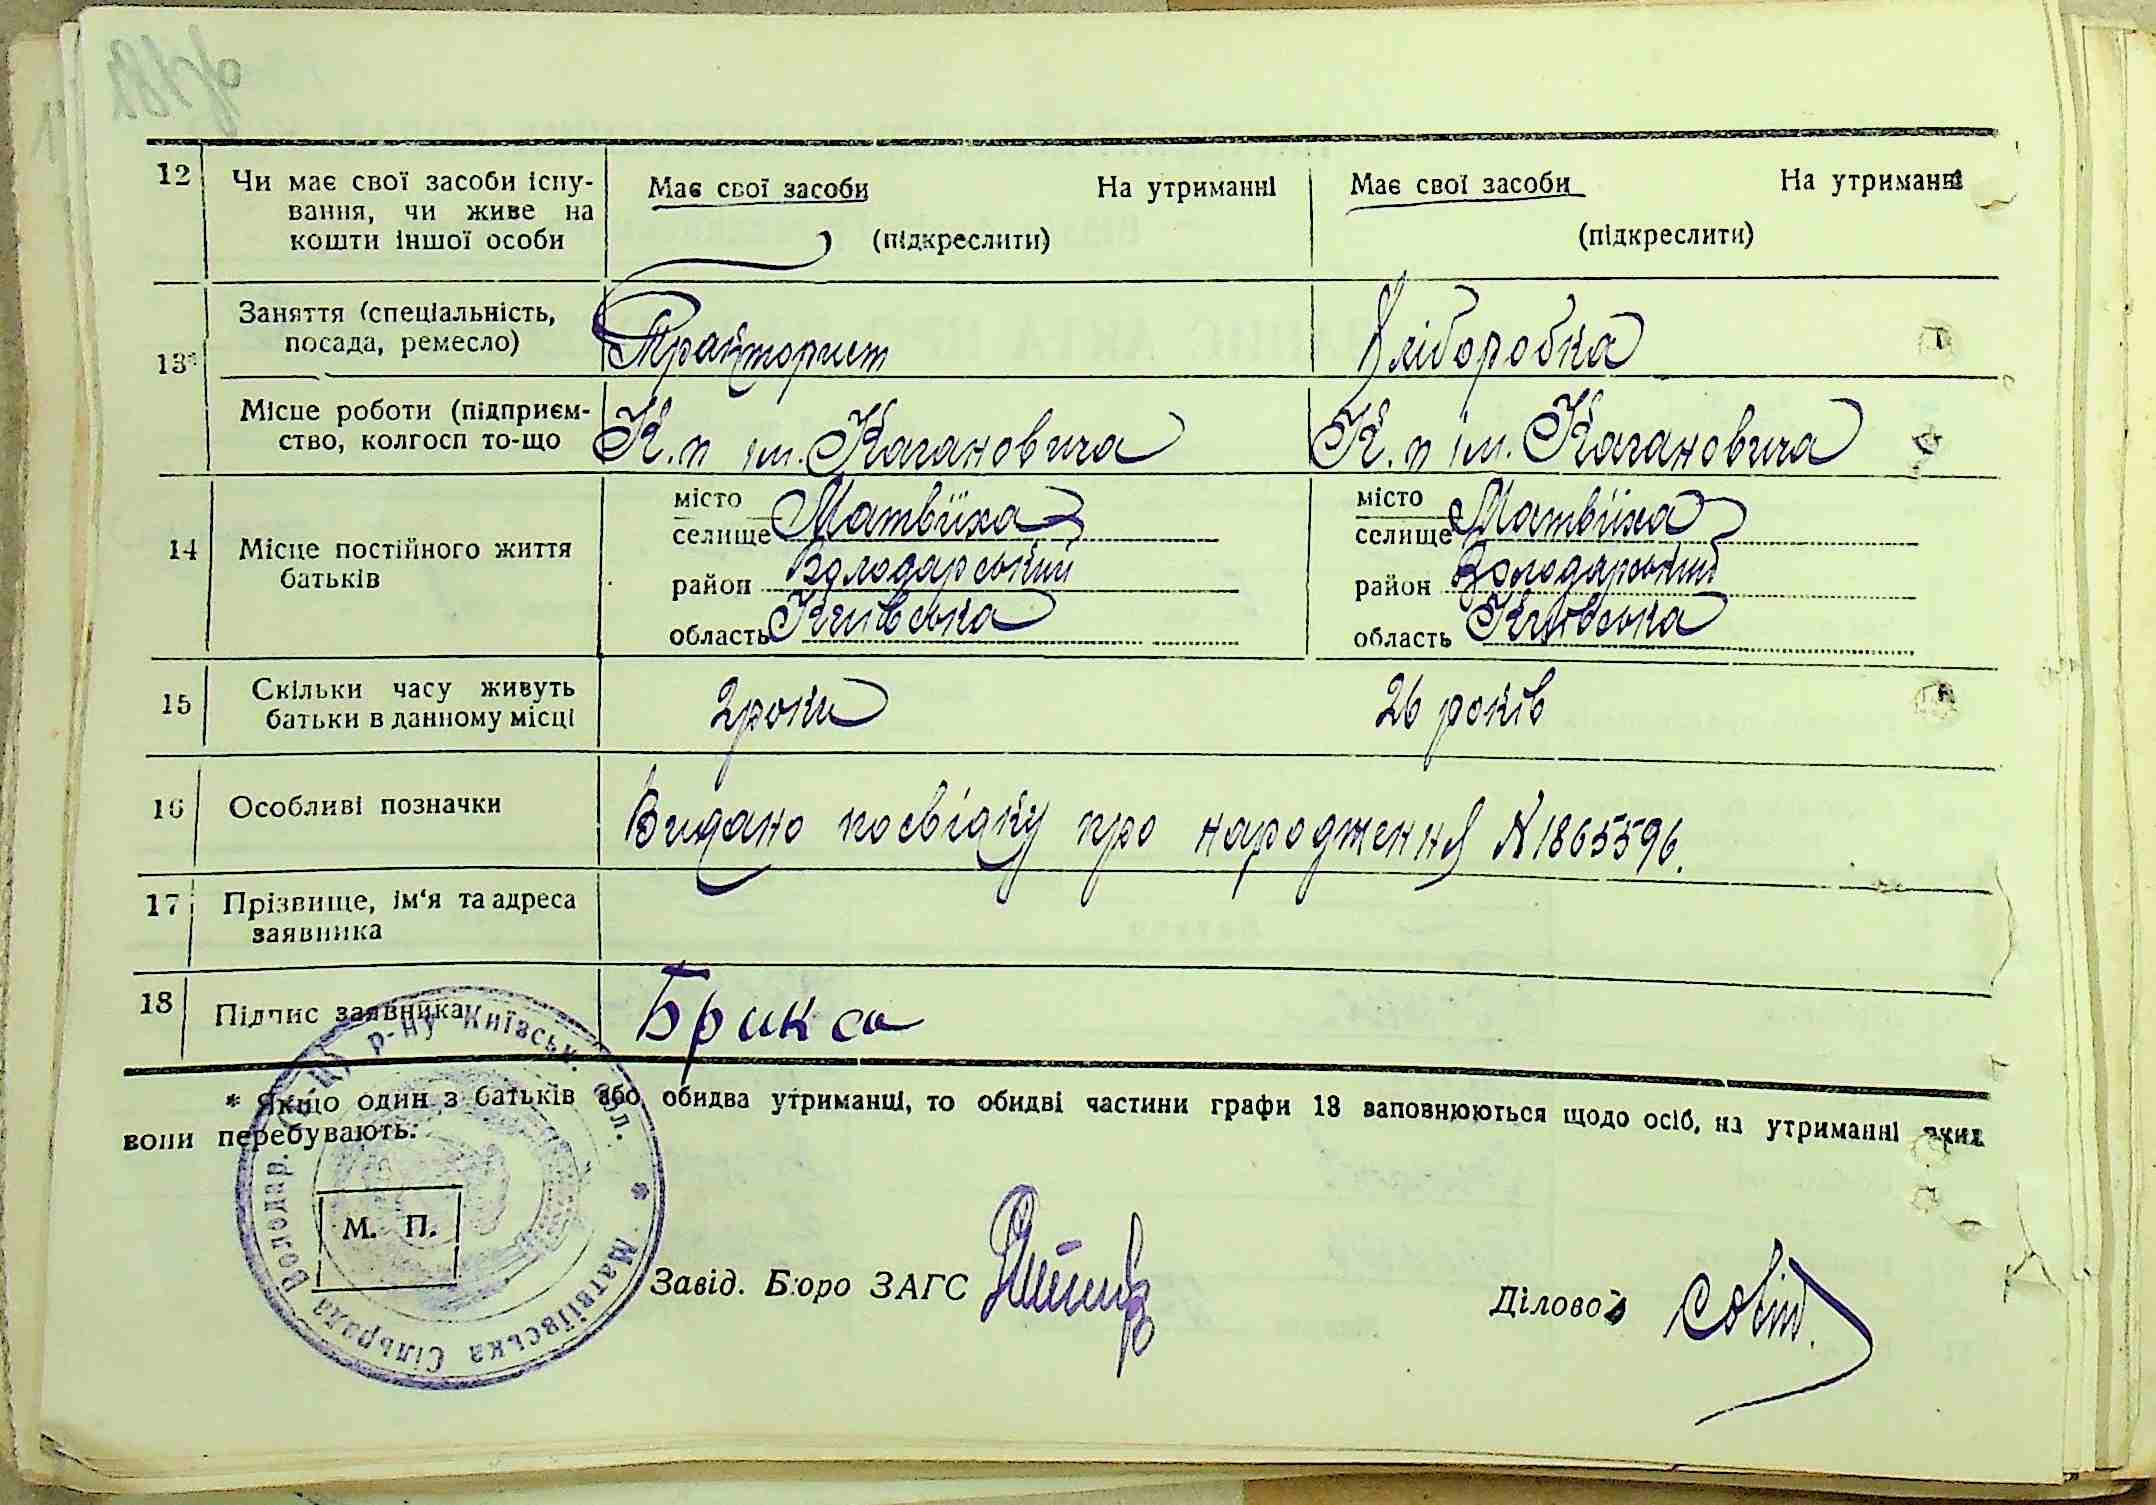 12 Чи має свої засоби існу-
вання, чи живе на
кошти іншої особи
Має свої засоби На утриманні
(підкреслити)
Має свої засоби На утриманні
(підкреслити)
13* Заняття (спеціальність,
посада, ремесло)
Тракторист
Хліборобка
Місце роботи (підприєм-
ство, колгосп то-що
К.п ім. Кагановича
К.п ім. Кагановича
14 Місце постійного життя
батьків
місто
селище Матвіїха
район Володарський
область Київська
місто
селище Матвіїха
район Володарський
область Київська
15 Скільки часу живуть
батьки в данному місці
2 роки
26 років
16 Особливі позначки
Видано посвідку про народження N 1865596.
17 Прізвище, ім'я та адреса
заявника
18 Підпис заявника
Брикса
* Якщо один з батьків або обидва утриманці, то обидві частини графи 13 заповнюються щодо осіб, на утриманні яких
вони перебувають.
М. П.
р-ну Київськ. Обл. * Матвіївська Сільрада Володар.
Завід. Бюро ЗАГС
Діловод